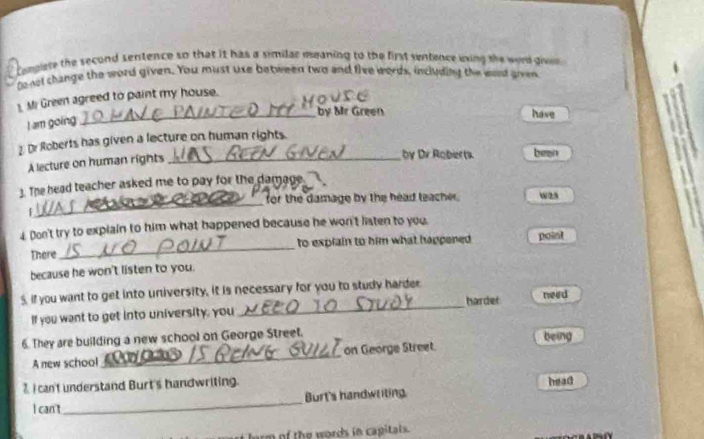 Complete the second sentence so that it has a similar meaning to the first sentence using the word given.
Do not change the word given. You must use between two and five words, including the word given.
1. Mr Green agreed to paint my house.
I am going TO HAVE PAINTED MY HOUSE by Mr Green
have
2. Dr Roberts has given a lecture on human rights.
A lecture on human rights WAS BEEN GIVEN by Dr Roberts.
been
3. The head teacher asked me to pay for the damage.
I WAS for the damage by the head teacher.
was
4. Don't try to explain to him what happened because he won't listen to you.
There IS NO POINT to explain to him what happened
point
because he won't listen to you.
5. If you want to get into university, it is necessary for you to study harder.
If you want to get into university, you NEED TO STUDY harder
need
6. They are building a new school on George Street.
A new school IS BEING BUILT on George Street.
being
7. I can't understand Burt's handwriting.
I can't Burt's handwriting.
head
of the words in capitals.